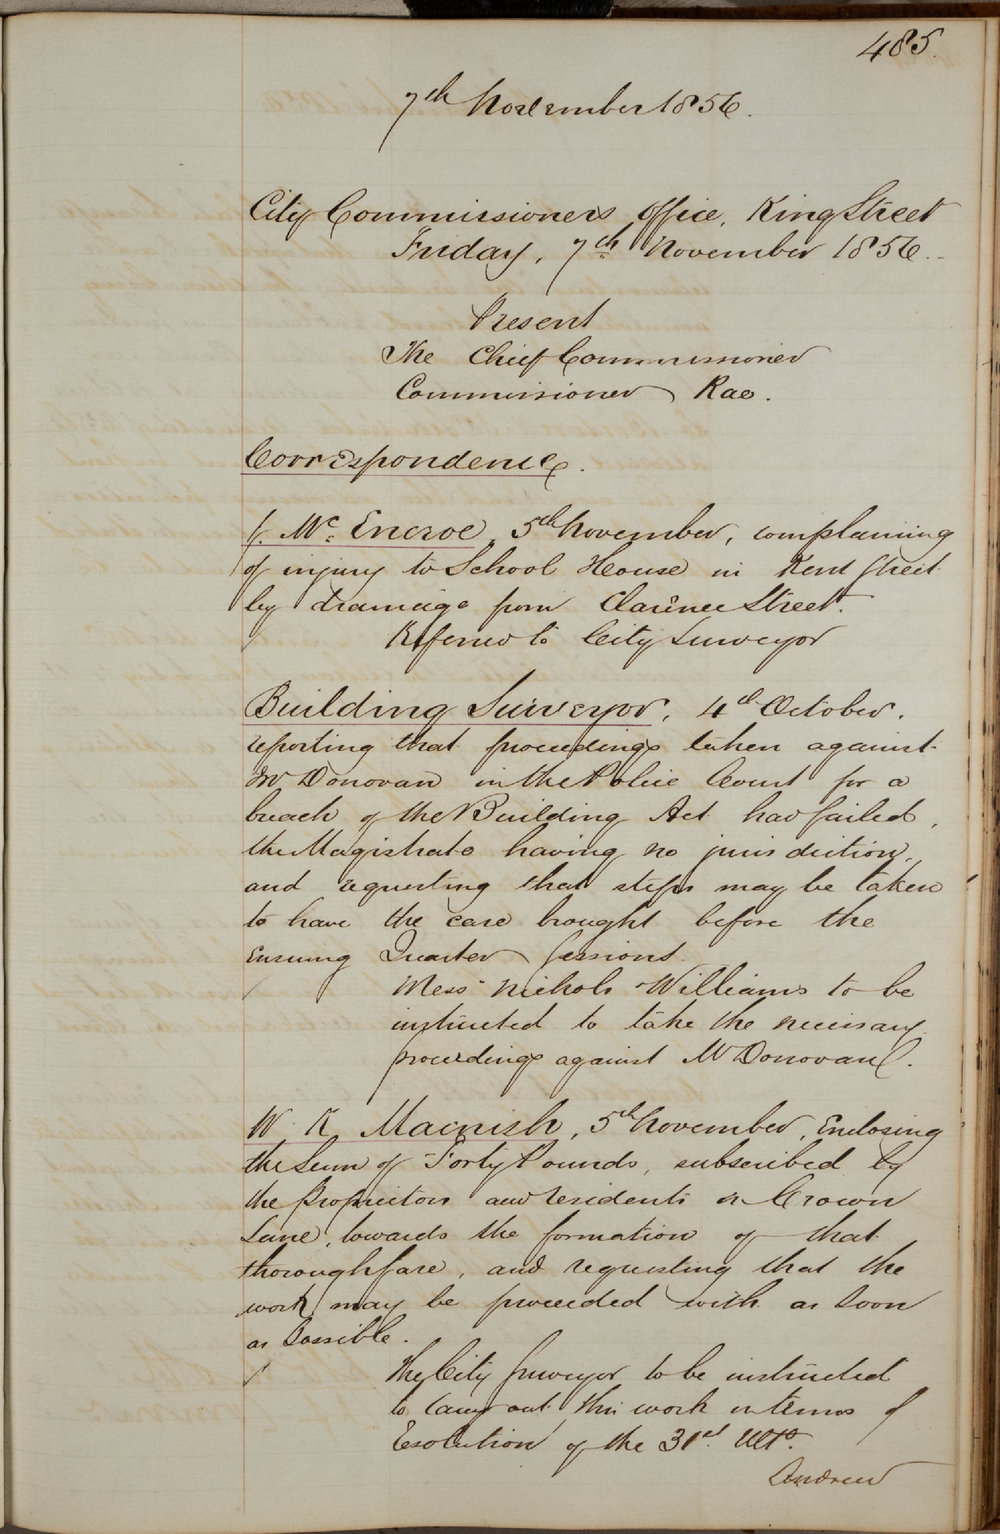 485.
7th November 1856.
City Commissioners Office, King Street
Friday, 7th November 1856.
Present
The Chief Commissioner
Commissioner Rae.
Correspondence.
J. Mc. Encroe, 5th November, complaining
of injury to School House in Kent Street
by drainage from Clarence Street.
Referred to City Surveyor
Building Surveyor, 4th October,
reporting that proceedings taken against
Mr Donovan in the Police Court for a
breach of the Building Act had failed,
the Magistrate having no jurisdiction,
and requesting that steps may be taken
to have the case brought before the
ensuing Quarter Sessions
Messrs Nichols & Williams to be
instructed to take the necessary
proceedings against Mr Donovan.
W R Macnish, 5th November, Enclosing
the Sum of Forty Pounds, subscribed by
the Proprietors and residents in Crown
Lane, towards the formation of that
thoroughfare, and requesting that the
work may be proceeded with as Soon
as Possible.
The City Surveyor to be instructed
to carry out this work in terms of
Resolution of the 31st. Ulto.
Andrew